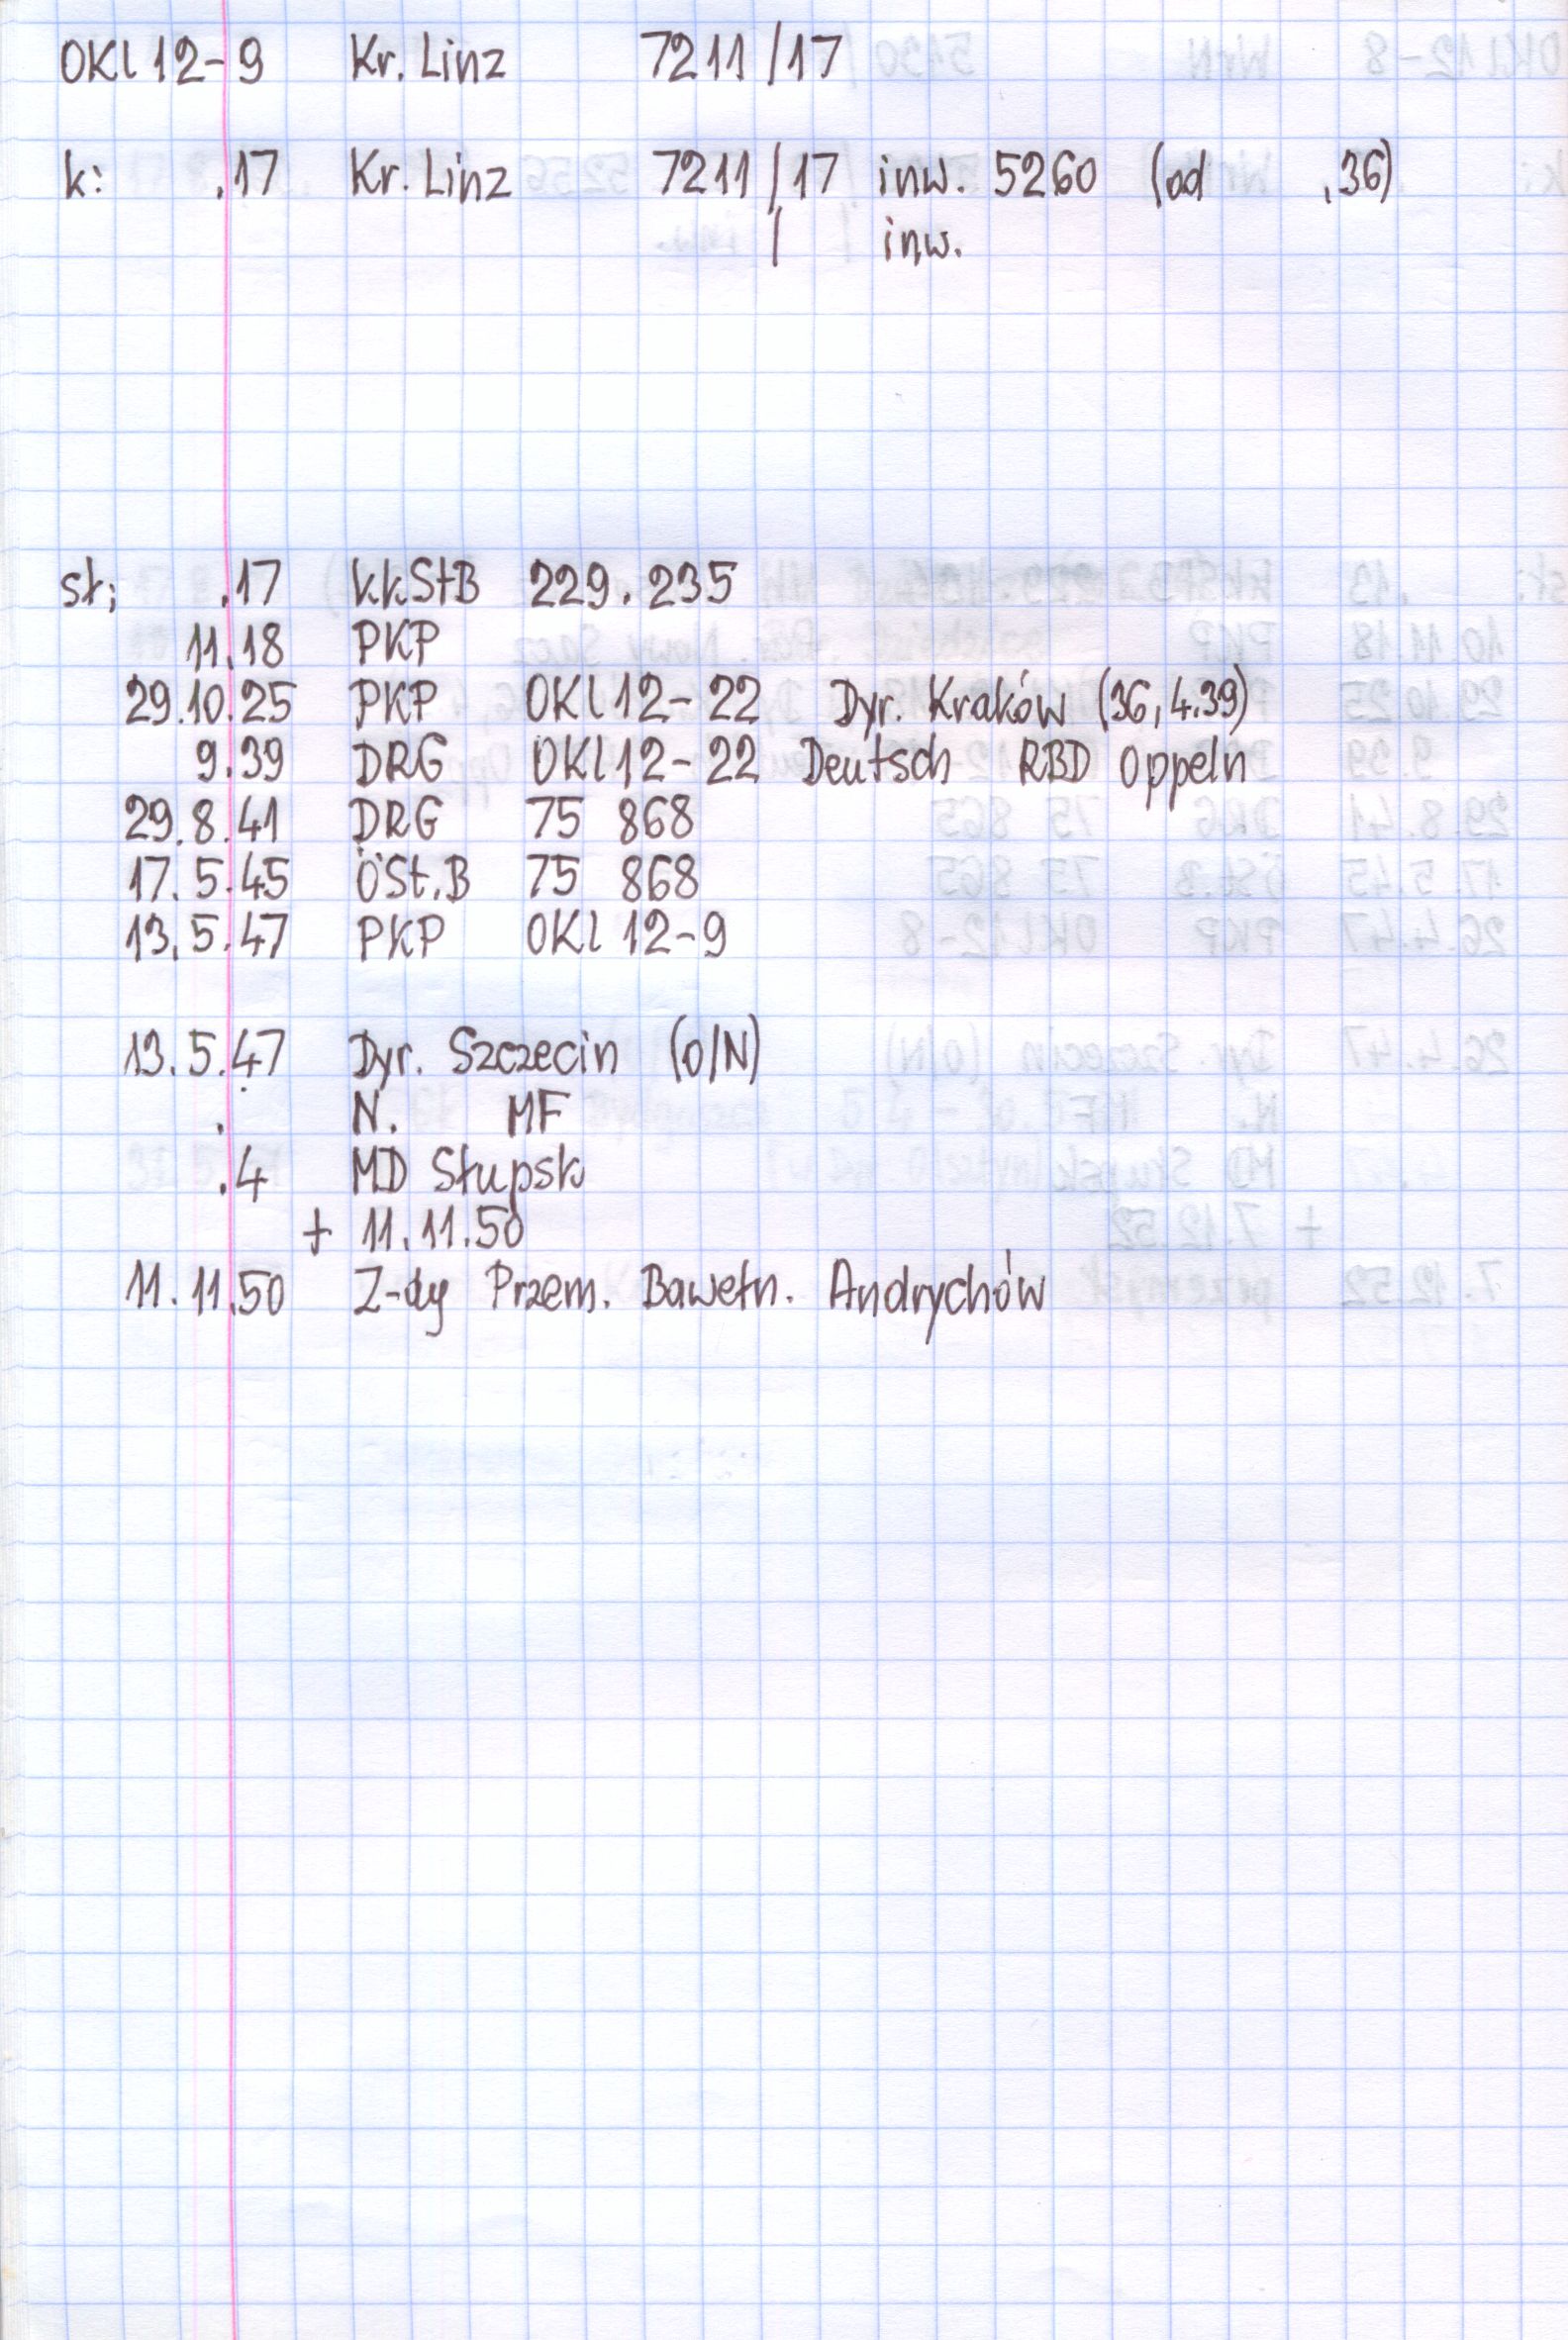 OKl 12-9 Kr. Linz 7211/17
k: .17 Kr. Linz 7211/17 inw. 5260 (od .36)
/ inw.
st: .17 kkStB 229.235
11.18 PKP
29.10.25 PKP OKl 12-22 Dyr. Kraków (36, 4.39)
9.39 DRG OKl 12-22 Deutsch RBD Oppeln
29.8.41 DRG 75 868
17.5.45 ÖSt.B 75 868
13.5.47 PKP OKl 12-9
13.5.47 Dyr. Szczecin (o/N)
. N. MF
.4 MD Słupsk
+ 11.11.50
11.11.50 Z-dy Przem. Bawełn. Andrychów